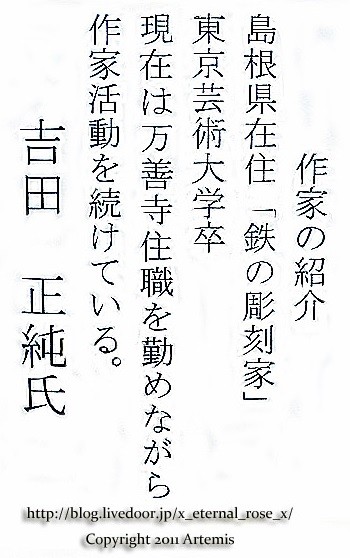 作家の紹介
島根県在住「鉄の彫刻家」
東京芸術大学卒
現在は万善寺住職を勤めながら
作家活動を続けている。
吉田　正純氏
http://blog.livedoor.jp/x_eternal_rose_x/
Copyright 2011 Artemis